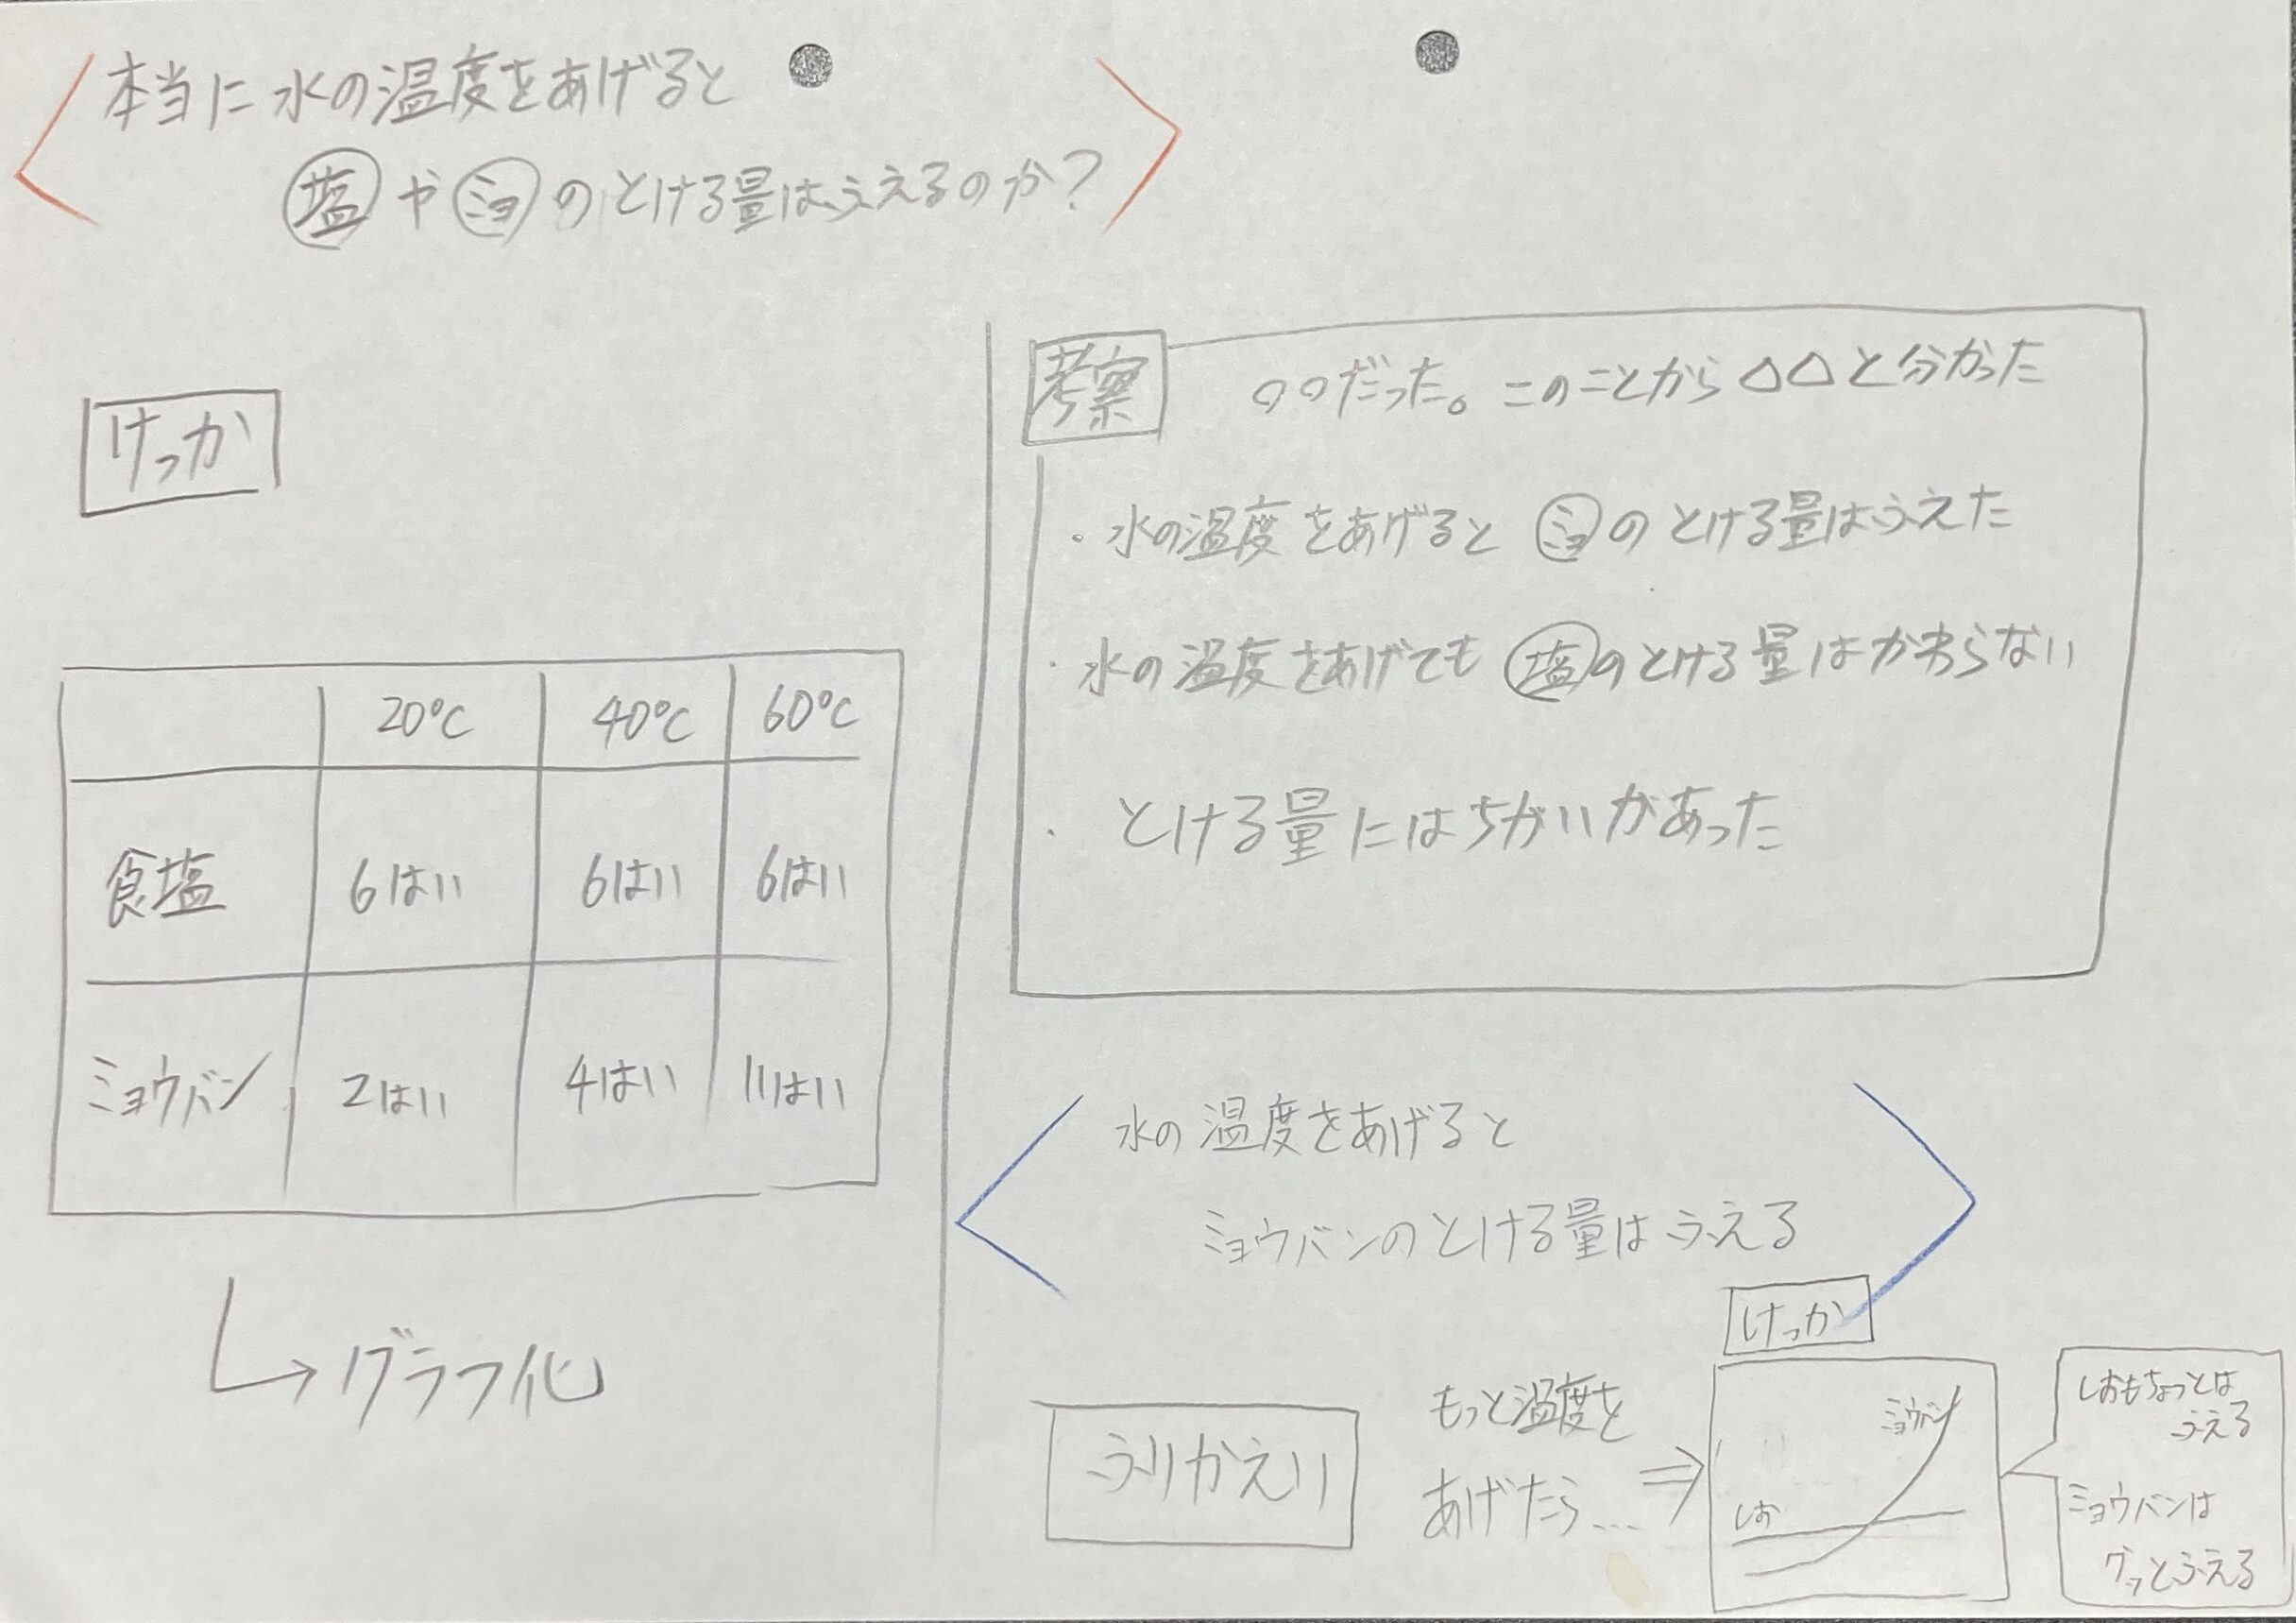 本当に水の温度をあげると
塩やミョのとける量はふえるのか?
けっか
20℃ 40℃ 60℃
食塩 6はい 6はい 6はい
ミョウバン 2はい 4はい 11はい
グラフ化
考察 ○○だった。このことから△△と分かった
・水の温度をあげるとミョのとける量はふえた
・水の温度をあげても塩のとける量はかわらない
・とける量にはちがいがあった
水の温度をあげると
ミョウバンのとける量はふえる
ふりかえり
もっと温度を
あげたら…
けっか
ミョウバン
しお
しおもちょっとは
ふえる
ミョウバンは
グッとふえる